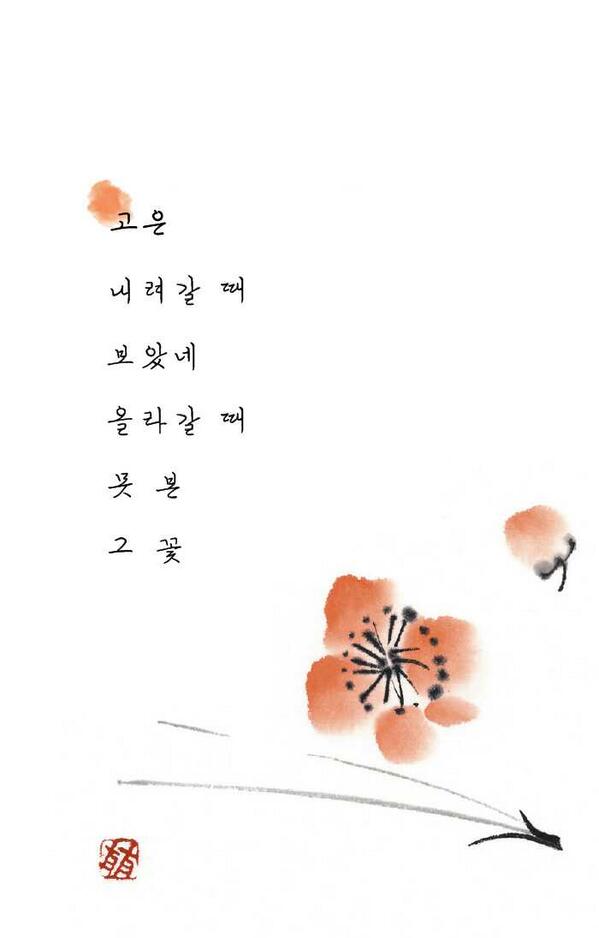 고은
내려갈 때
보았네
올라갈 때
못 본
그 꽃